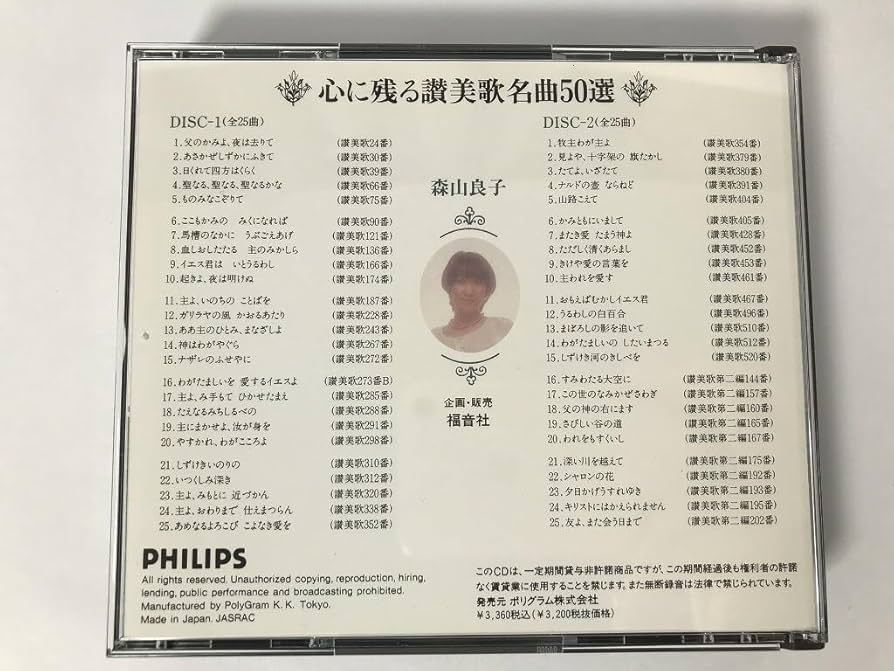 心に残る讃美歌名曲50選
DISC-1(全25曲)
1.父のかみよ、夜は去りて (讃美歌24番)
2.あさかぜしずかにふきて (讃美歌30番)
3.日くれて四方はくらく (讃美歌39番)
4.聖なる、聖なる、聖なるかな (讃美歌66番)
5.ものみなこぞりて (讃美歌75番)
6.ここもかみの みくになれば (讃美歌90番)
7.馬槽のなかに うぶごえあげ (讃美歌121番)
8.血しおしたたる 主のみかしら (讃美歌136番)
9.イエス君は いとうるわし (讃美歌166番)
10.起きよ、夜は明けぬ (讃美歌174番)
11.主よ、いのちの ことばを (讃美歌187番)
12.ガリラヤの風 かおるあたり (讃美歌228番)
13.ああ主のひとみ、まなざしよ (讃美歌243番)
14.神はわがやぐら (讃美歌267番)
15.ナザレのふせやに (讃美歌272番)
16.わがたましいを 愛するイエスよ (讃美歌273番B)
17.主よ、み手もて ひかせたまえ (讃美歌285番)
18.たえなるみちしるべの (讃美歌288番)
19.主にまかせよ、汝が身を (讃美歌291番)
20.やすかれ、わがこころよ (讃美歌298番)
21.しずけきいのりの (讃美歌310番)
22.いつくしみ深き (讃美歌312番)
23.主よ、みもとに 近づかん (讃美歌320番)
24.主よ、おわりまで 仕えまつらん (讃美歌338番)
25.あめなるよろこび こよなき愛を (讃美歌352番)
森山良子
企画・販売
福音社
DISC-2(全25曲)
1.牧主わが主よ (讃美歌354番)
2.見よや、十字架の 旗たかし (讃美歌379番)
3.たてよ、いざたて (讃美歌380番)
4.ナルドの壺 ならねど (讃美歌391番)
5.山路こえて (讃美歌404番)
6.かみともにいまして (讃美歌405番)
7.またき愛 たまう神よ (讃美歌428番)
8.ただしく清くあらまし (讃美歌452番)
9.きけや愛の言葉を (讃美歌453番)
10.主われを愛す (讃美歌461番)
11.おもえばむかしイエス君 (讃美歌467番)
12.うるわしの白百合 (讃美歌496番)
13.まぼろしの影を追いて (讃美歌510番)
14.わがたましいの したいまつる (讃美歌512番)
15.しずけき河のきしべを (讃美歌520番)
16.すみわたる大空に (讃美歌第二編144番)
17.この世のなみかぜさわぎ (讃美歌第二編157番)
18.父の神の右にます (讃美歌第二編160番)
19.さびしい谷の道 (讃美歌第二編165番)
20.われをもすくいし (讃美歌第二編167番)
21.深い川を越えて (讃美歌第二編175番)
22.シャロンの花 (讃美歌第二編192番)
23.夕日かげうすれゆき (讃美歌第二編193番)
24.キリストにはかえられません (讃美歌第二編195番)
25.友よ、また会う日まで (讃美歌第二編202番)
PHILIPS
All rights reserved. Unauthorized copying, reproduction, hiring,
lending, public performance and broadcasting prohibited.
Manufactured by PolyGram K. K. Tokyo.
Made in Japan. JASRAC
このCDは、一定期間貸与非許諾商品ですが、この期間経過後も権利者の許諾
なく賃貸業に使用することを禁じます。また無断録音は法律で禁じられています。
発売元 ポリグラム株式会社
¥3,360税込(¥3,200税抜価格)